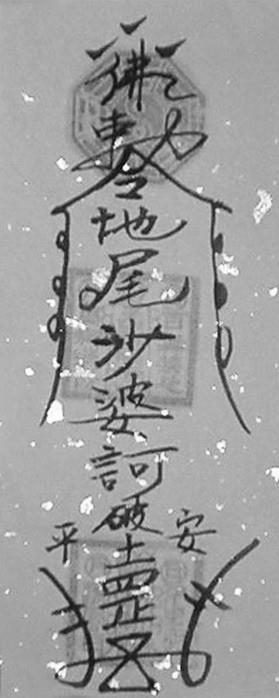 佛
敕令
地
尾
沙
婆
訶
破
平 土 安
罡